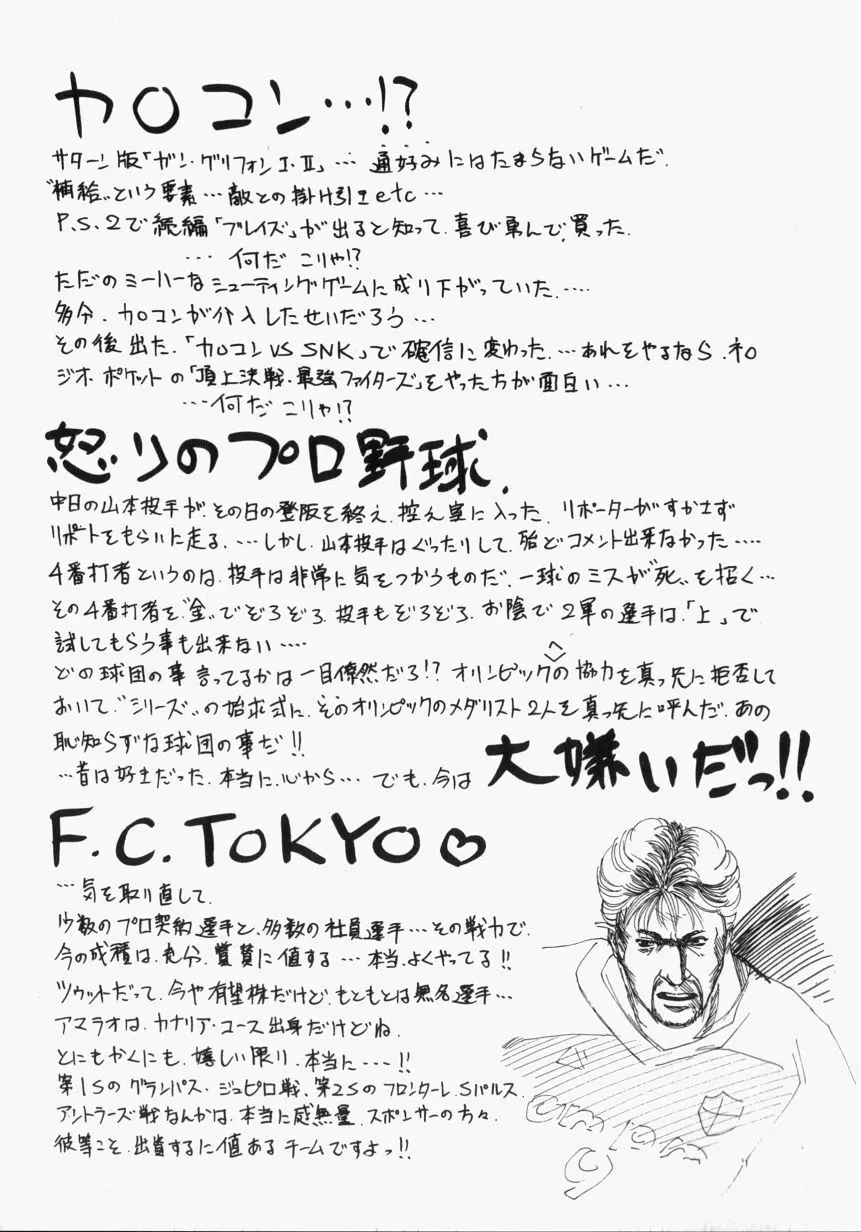 カ○コン…!?
サターン版「ガン・グリフォンⅠ・Ⅱ」… 通好みにはたまらないゲームだ.
"補給"という要素…敵との掛け引きetc…
P.S.2で続編「ブレイズ」が出ると知って.喜び勇んで.買った.
…何だ こりゃ!?
ただのミーハーなシューティングゲームに成り下がっていた.….
多分.カ○コンが介入したせいだろう…
その後出た.「カ○コンVS SNK」で確信に変わった.…あれをやるなら.ネ○
ジオ.ポケットの「頂上決戦・最強ファイターズ」をやった方が面白い…
…何だ こりゃ!?
怒りのプロ野球.
中日の山本投手が.その日の登板を終え.控え室に入った. リポーターがすかさず
リポートをもらいに走る.….しかし.山本投手はぐったりして.殆どコメント出来なかった….
4番打者というのは.投手は非常に気をつかうものだ.一球のミスが"死"を招く…
その4番打者を"金"でぞろぞろ.投手もぞろぞろ.お陰で2軍の選手は.「上」で
試してもらう事も出来ない….
どの球団の事 言ってるかは一目僚然だろ!? オリンピックへの協力を真っ先に拒否して
おいて."シリーズ"の始球式に.そのオリンピックのメダリスト2人を真っ先に呼んだ.あの
恥知らずな球団の事だ!!
…昔は好きだった.本当に.心から… でも.今は 大嫌いだっ!!
F.C.TOKYO♡
…気を取り直して.
少数のプロ契約選手と.多数の社員選手…その戦力で.
今の成種は.充分.賞賛に値する…本当.よくやってる!!
ツゥットだって.今や有望株だけど.もともとは無名選手…
アマラオは.カナリア・ユース出身だけどね.
とにもかくにも.嬉しい限り.本当に….!!
第1Sのグランパス・ジュビロ戦、第2Sのフロンターレ.Sパルス.
アントラーズ戦なんかは.本当に感無量.スポンサーの方々.
彼等こそ.出資するに値あるチームですよっ!!
am pm
9